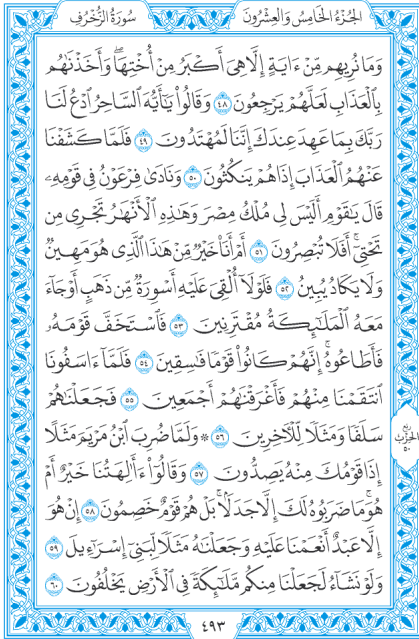 الجُزْءُ الخَامِسُ وَالعِشْرُونَ سُورَةُ الزُّخْرُفِ
وَمَا نُرِيهِم مِّنْ ءَايَةٍ إِلَّا هِيَ أَكْبَرُ مِنْ أُخْتِهَاۖ وَأَخَذْنَٰهُم
بِالْعَذَابِ لَعَلَّهُمْ يَرْجِعُونَ ٤٨ وَقَالُوا۟ يَٰٓأَيُّهَ السَّاحِرُ ادْعُ لَنَا
رَبَّكَ بِمَا عَهِدَ عِندَكَ إِنَّنَا لَمُهْتَدُونَ ٤٩ فَلَمَّا كَشَفْنَا
عَنْهُمُ الْعَذَابَ إِذَا هُمْ يَنكُثُونَ ٥٠ وَنَادَىٰ فِرْعَوْنُ فِي قَوْمِهِۦ
قَالَ يَٰقَوْمِ أَلَيْسَ لِي مُلْكُ مِصْرَ وَهَٰذِهِ الْأَنْهَٰرُ تَجْرِي مِن
تَحْتِيٓۚ أَفَلَا تُبْصِرُونَ ٥١ أَمْ أَنَا۠ خَيْرٌ مِّنْ هَٰذَا الَّذِي هُوَ مَهِينٌ
وَلَا يَكَادُ يُبِينُ ٥٢ فَلَوْلَآ أُلْقِيَ عَلَيْهِ أَسْوِرَةٌ مِّن ذَهَبٍ أَوْ جَآءَ
مَعَهُ الْمَلَٰٓئِكَةُ مُقْتَرِنِينَ ٥٣ فَاسْتَخَفَّ قَوْمَهُۥ
فَأَطَاعُوهُۚ إِنَّهُمْ كَانُوا۟ قَوْمًا فَٰسِقِينَ ٥٤ فَلَمَّآ ءَاسَفُونَا
انتَقَمْنَا مِنْهُمْ فَأَغْرَقْنَٰهُمْ أَجْمَعِينَ ٥٥ فَجَعَلْنَٰهُمْ
سَلَفًا وَمَثَلًا لِّلْءَاخِرِينَ ٥٦ ۞ وَلَمَّا ضُرِبَ ابْنُ مَرْيَمَ مَثَلًا
إِذَا قَوْمُكَ مِنْهُ يَصِدُّونَ ٥٧ وَقَالُوٓا۟ ءَأَٰلِهَتُنَا خَيْرٌ أَمْ
هُوَۚ مَا ضَرَبُوهُ لَكَ إِلَّا جَدَلًاۢۚ بَلْ هُمْ قَوْمٌ خَصِمُونَ ٥٨ إِنْ هُوَ
إِلَّا عَبْدٌ أَنْعَمْنَا عَلَيْهِ وَجَعَلْنَٰهُ مَثَلًا لِّبَنِيٓ إِسْرَٰٓءِيلَ ٥٩
وَلَوْ نَشَآءُ لَجَعَلْنَا مِنكُم مَّلَٰٓئِكَةً فِي الْأَرْضِ يَخْلُفُونَ ٦٠
ربع
الحزب
٥٠
٤٩٣